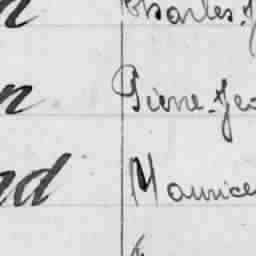 n Charles-J
n Pierre-Jea
nd Maurice